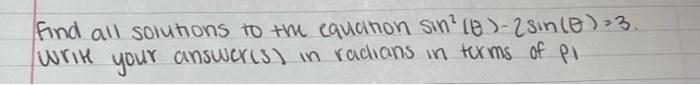 Find all solutions to the equation sin² (θ) - 2sin(θ) = 3.
Write your answer(s) in radians in terms of pi